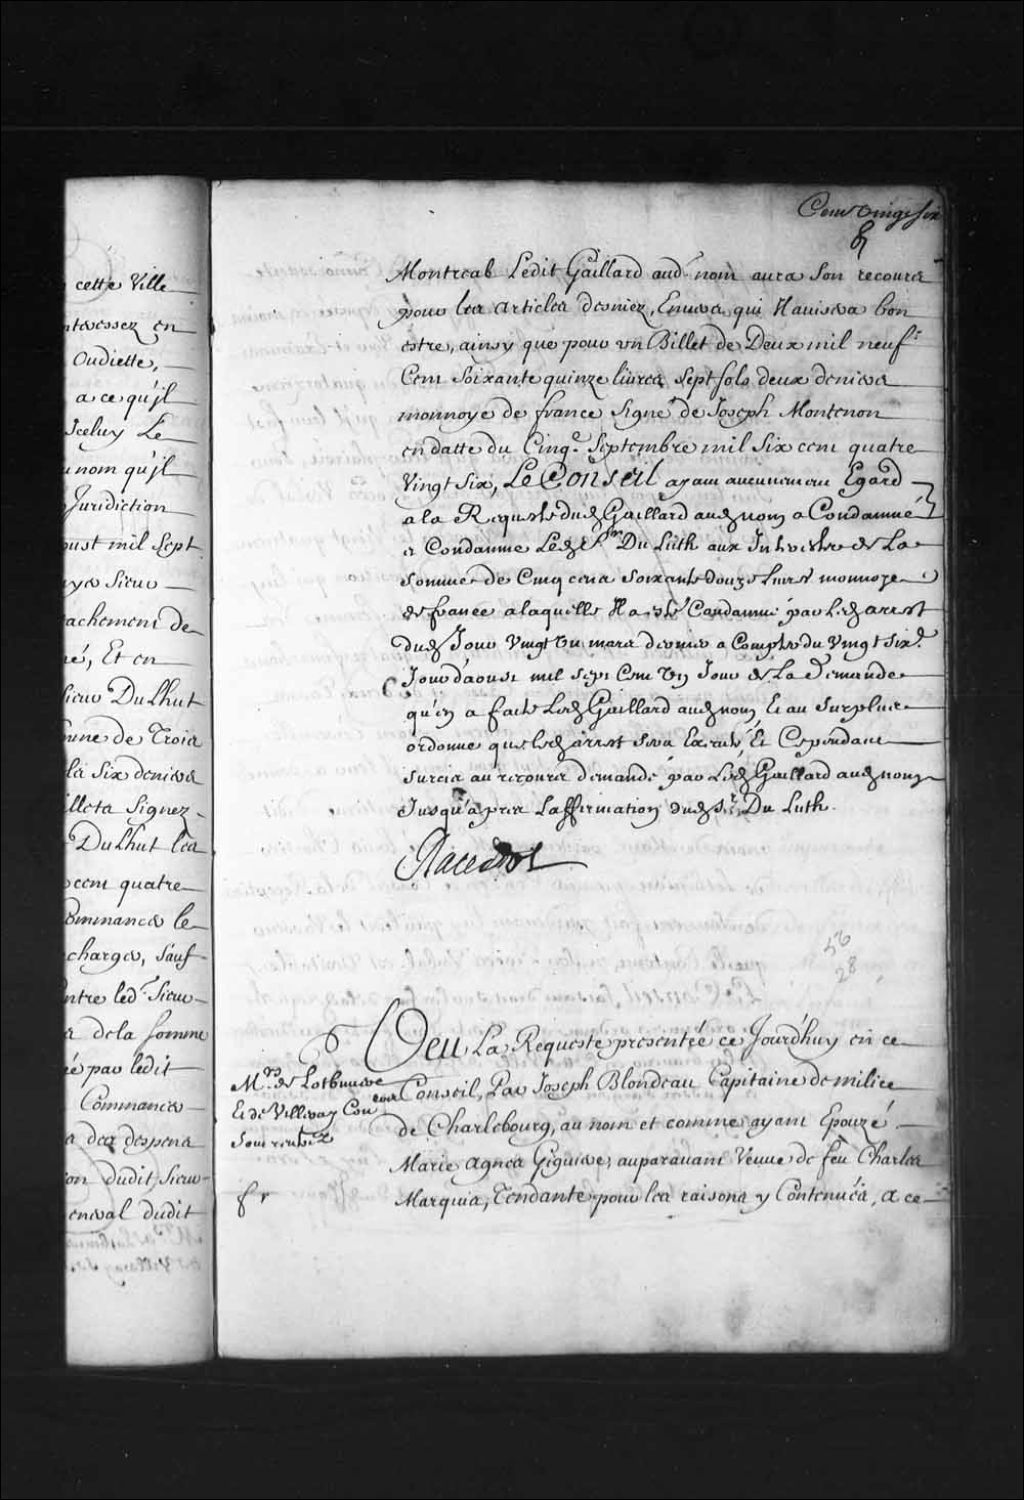 Cent vingt six
cette Ville
nteressez en
Oudiette,
a ce qu'jl
Jceluy Le
u nom qu'jl
Jurisdiction
oust mil Sept
sieur
achement de
né, Et en
Sieur Dulhut
mme de Trois
ls six deniers
illets Signez
Dulhut les
cent quatre
Commances le
charges, sauf
ntre led. Sieur
s de la somme
é par ledit
Commances
a des despens
on dudit Sieur
eneral dudit
Montreal Ledit Gaillard aud. nom aura Son recours
pour les articles derniez, Envers qui Il avisera bon
estre, ainsy que pour un Billet de Deux mil neuf
Cent Soixante quinze livres Sept sols deux deniers
monnoye de france Signé de Joseph Montenon
en datte du Cinqe. Septembre mil Six cent quatre
Vingt Six, Le Conseil ayant aucunement Egard
a la Requeste dud Gaillard aud nom a Condamné
et Condamne Led Sr. Du Luth aux Interestz de La
Somme de Cinq cens Soixante douze Livres monnoye
de france a laquelle Il a esté Condamné par led arrest
dud Jour Vingt Un mars dernier a Compter du Vingt Sixe.
Jour d'aoust mil Sept Cent Un Jour de La Demande
qu'en a faite Led Gaillard aud nom Et au Surplus
ordonne que led arrest Sera Executé, Et Cependant
Surcis au recours demandé par Led Gaillard aud nom
Jusqu'apres Laffirmation dud Sr. Du Luth.
53
28
Veu La Requeste presentée ce Jourd'huy en ce
Mrs. de Lotbiniere
Et de Villeray Coners
Conseil, Par Joseph Blondeau Capitaine de milice
Sont retirez
de Charlebourg, au nom et comme ayant Epouzé
Marie Agnes Giguiere, auparavant Veuve de feu Charles
Marquis, Tendante pour les raisons y Contenuës, a ce